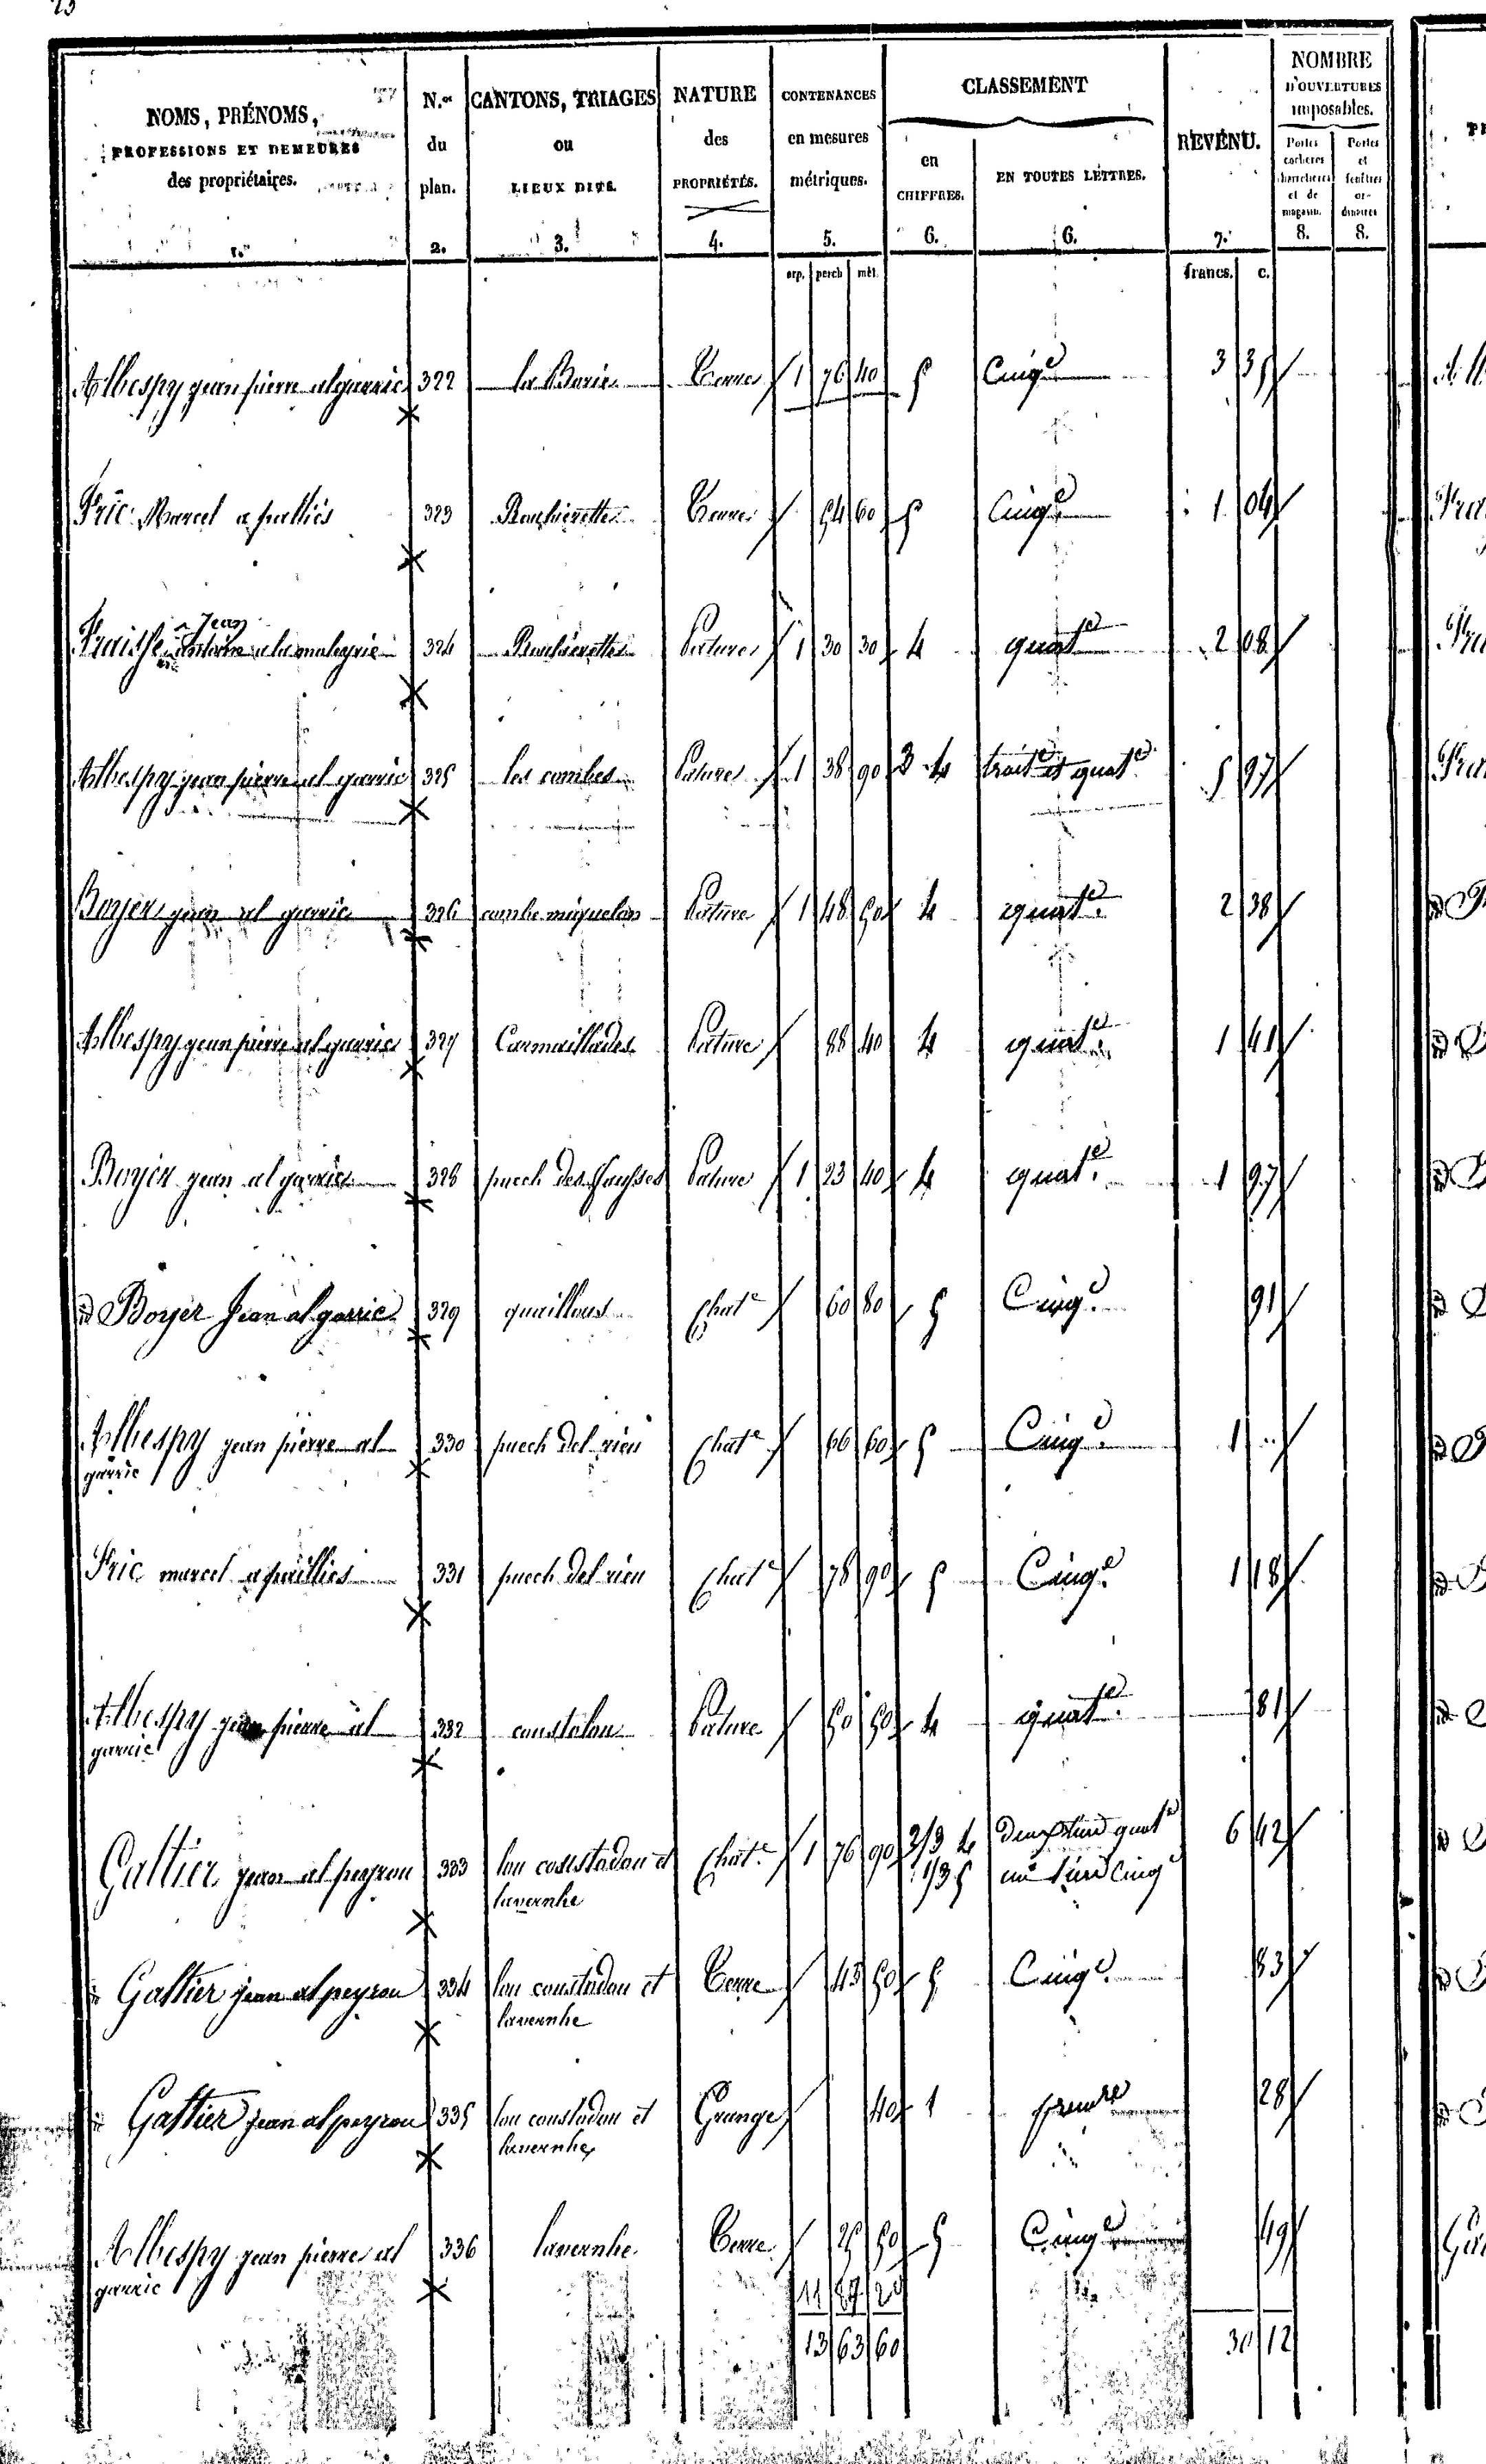 NOMS, PRÉNOMS, PROFESSIONS ET DEMEURES des propriétaires. 1.
N.os du plan. 2.
CANTONS, TRIAGES ou LIEUX DITS. 3.
NATURE des PROPRIÉTÉS. 4.
CONTENANCES en mesures métriques. 5.
CLASSEMENT
en CHIFFRES. 6.
EN TOUTES LETTRES. 6.
REVENU. 7.
NOMBRE D'OUVERTURES imposables.
Portes cocheres charretieres et de magasin. 8.
Portes et fenêtres ordinaires 8.
arp. perch mèt. francs. c.
Albespy jean pierre al garric 322 la Borie Terre 1 76 40 5 Cinq.e 3 35
Fric Marcel a palliés 323 Terre 54 60 5 Cinq.e 1 04
Fraisse Jean 324 Pature 1 30 30 4 quat.e 2 08
Albespy jean pierre al garric 325 les combes Pature 1 38 90 3 4 trois.e et quat.e 5 97
Boyer jean al garric 326 combe miquelou Pature 1 48 50 4 quat.e 2 38
Albespy jean pierre al garric 327 Carmaillades Pature 88 40 4 quat.e 1 41
Boyer jean al garric 328 puech des Pature 1 23 40 4 quat.e 1 97
id Boyer Jean al garric 329 Chat.e 60 80 5 Cinq.e 91
Albespy jean pierre al garric 330 puech del rieu Chat.e 66 60 5 Cinq.e 1 ..
Fric marcel a pailliés 331 puech del rieu Chat.e 78 90 5 Cinq.e 1 18
Albespy jean pierre al garric 332 coustelou Pature 50 50 4 quat.e 81
Galtier jean al peyrou 333 lou coustadou et lavernhe Chat.e 1 76 90 2/3 4 1/3 5 deux tiers quat.e un tiers cinq.e 6 42
id Galtier jean al peyrou 334 lou coustadou et lavernhe Terre 43 50 5 Cinq.e 83
id Galtier jean al peyrou 335 lou coustadou et lavernhe Grange 40 1 prem.re 28
Albespy jean pierre al garric 336 lavernhe Terre 25 50 5 Cinq.e 49
11 87 20
13 63 60 30 12